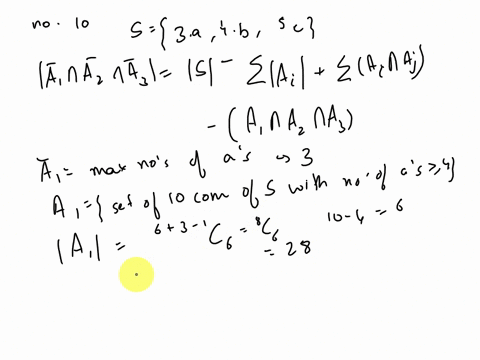 no. 10
S = {3.a, 4.b, 5c}
|Ā₁ ∩ Ā₂ ∩ Ā₃| = |S| - Σ|Aᵢ| + Σ(Aᵢ ∩ Aⱼ)
- (A₁ ∩ A₂ ∩ A₃)
Ā₁ = max no's of a's is 3
A₁ = { set of 10 com of S with no. of a's ≥ 4}
|A₁| = ⁶⁺³⁻¹C₆ = ⁸C₆ 10-4 = 6
= 28